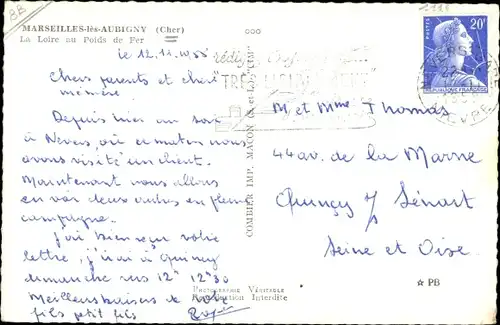 MARSEILLES-lès-AUBIGNY (Cher)
La Loire au Poids de Fer
le 12.11.1955
Chers parents et chère
mémère
Depuis hier au soir
à Nevers, où ce matin nous
avons visité un client.
Maintenant nous allons
en voir deux autres en pleine
campagne.
J'ai bien reçu votre
lettre, j'irai à Quincy
dimanche vers 12h 12h30
Meilleurs baisers de votre
fils petit fils Roger
COMBIER IMP. MACON (S.-et-L.) "CIM"
PHOTOGRAPHIE VÉRITABLE
Reproduction Interdite
POSTES
20F
REPUBLIQUE FRANÇAISE
NEVERS
NIEVRE
M et Mme Thomas
44 av. de la Marne
Quincy s/ Sénart
Seine et Oise
☆ PB